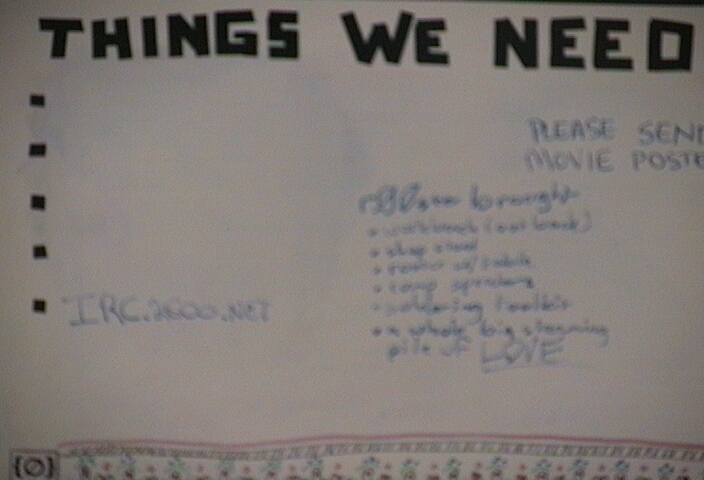 THINGS WE NEED
PLEASE SEND
MOVIE POSTE
brought
workbench (out back)
shop stool
router w/ table
comp speakers
soldering toolkit
a whole big steaming
pile of LOVE
IRC.2600.NET
{∅}